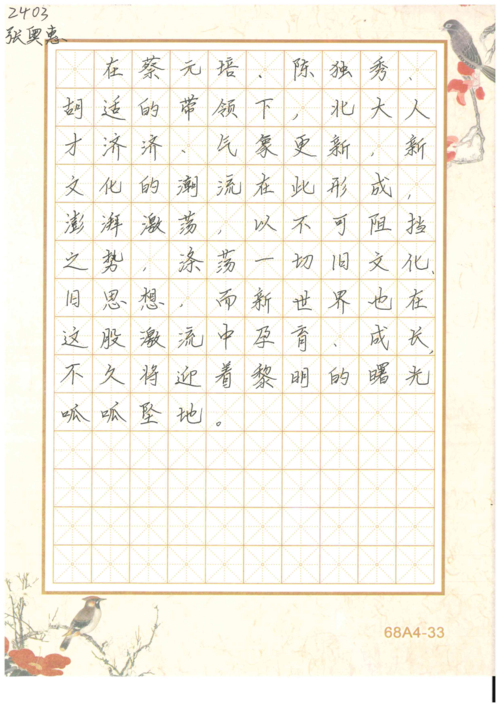 2403
张奥惠
在蔡元培、陈独秀、
胡适的带领下，北大人
才济济、气象更新，新
文化的潮流在此形成，
澎湃激荡，以不可阻挡
之势，涤荡一切旧文化、
旧思想，而新世界也在
这股激流中孕育、成长，
不久将迎着黎明的曙光
呱呱坠地。
68A4-33